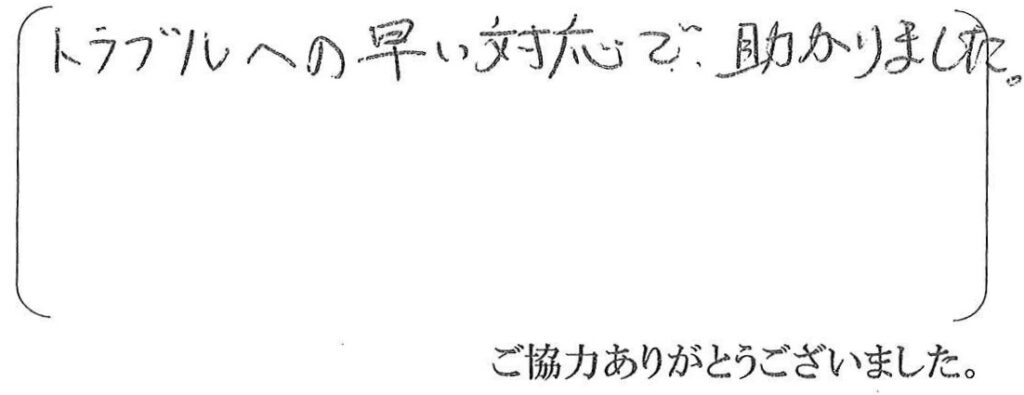 トラブルへの早い対応で、助かりました。
ご協力ありがとうございました。